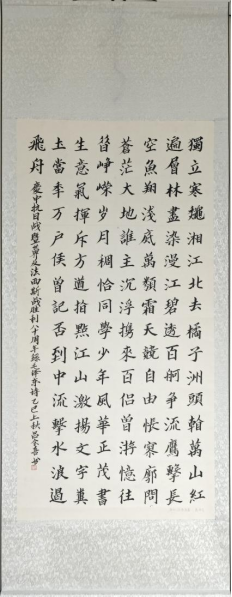 獨立寒秋湘江北去橘子洲頭看萬山紅
遍層林盡染漫江碧透百舸爭流鷹擊長
空魚翔淺底萬類霜天競自由悵寥廓問
蒼茫大地誰主沉浮攜來百侶曾遊憶往
昔崢嶸岁月稠恰同學少年風華正茂書
生意氣揮斥方遒指點江山激揚文字糞
土當年万户侯曾記否到中流擊水浪遏
飛舟 慶中抗日战暨世界反法西斯战胜利八十周年録毛澤東詩乙巳上秋吕金喜书